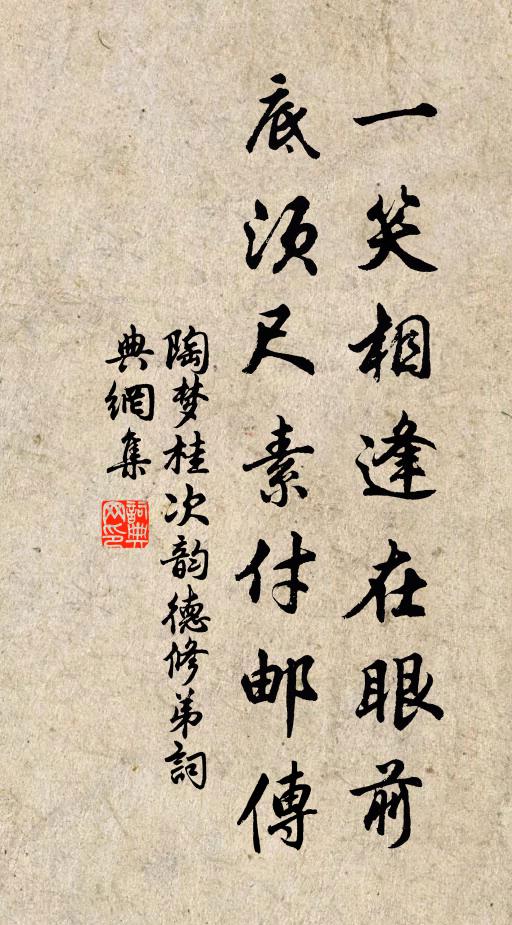 一笑相逢在眼前
底须尺素付邮傳
陶梦桂次韵德修弟詞
典網集
詞典网印